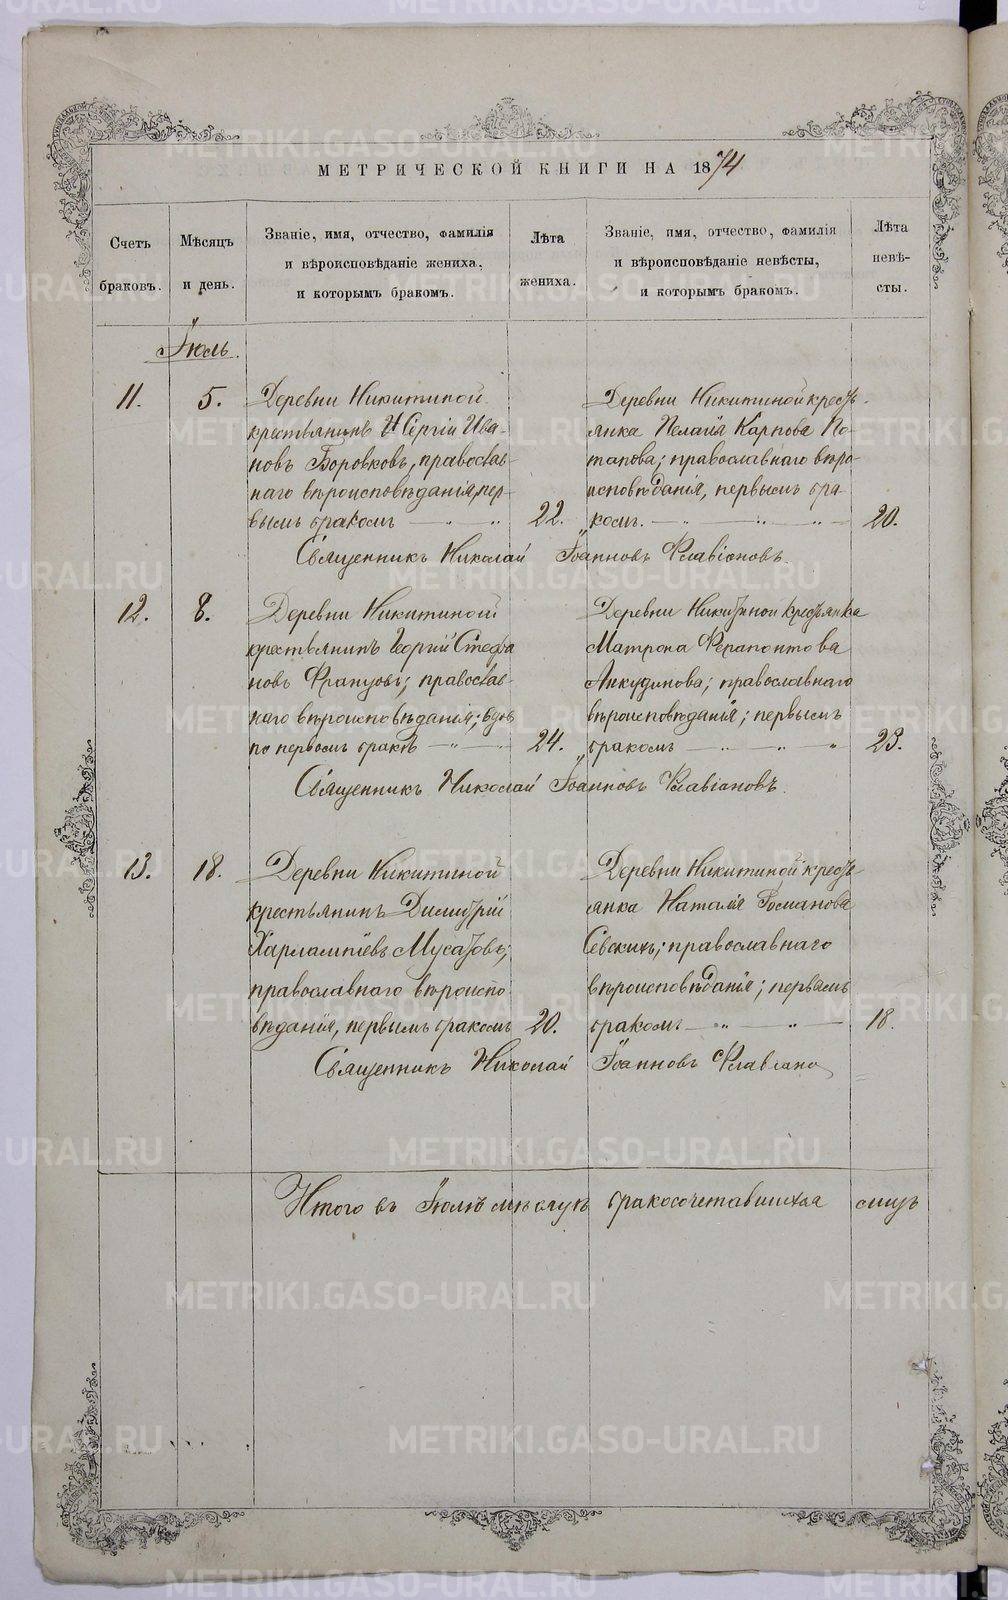 МЕТРИЧЕСКОЙ КНИГИ НА 1874
Счетъ браковъ.
Мѣсяцъ и день.
Званіе, имя, отчество, фамилія
и вѣроисповѣданіе жениха,
и которымъ бракомъ.
Лѣта жениха.
Званіе, имя, отчество, фамилія
и вѣроисповѣданіе невѣсты,
и которымъ бракомъ.
Лѣта невѣ-
сты.
Іюль.
11. 5.
Деревни Никитиной
крестьянинъ Сергій Ива-
новъ Боровковъ, православ-
наго вѣроисповѣданія, пер-
вымъ бракомъ
22.
Деревни Никитиной кресть-
янка Пелагія Карпова По-
тапова; православнаго вѣро-
исповѣданія, первымъ бра-
комъ.
20.
Священникъ Николай Іоанновъ Флавіановъ.
12. 8.
Деревни Никитиной
крестьянинъ Георгій Стефа
новъ Францовъ; православ-
наго вѣроисповѣданія; вдовъ
по первомъ бракѣ
24.
Деревни Никитиной крестьянка
Матрона Ферапонтова
Анкудинова; православнаго
вѣроисповѣданія; первымъ
бракомъ
23.
Священникъ Николай Іоанновъ Флавіановъ.
13. 18.
Деревни Никитиной
крестьянинъ Димитрій
Харлампіевъ Мусатовъ;
православнаго вѣроиспо
вѣданія, первымъ бракомъ
20.
Деревни Никитиной кресть-
янка Наталія Романова
Севскихъ; православнаго
вѣроисповѣданія; первымъ
бракомъ
18.
Священникъ Николай Іоанновъ Флавіано
Итого въ Іюлѣ мѣсяцѣ бракосочетавшихся
METRIKI.GASO-URAL.RU